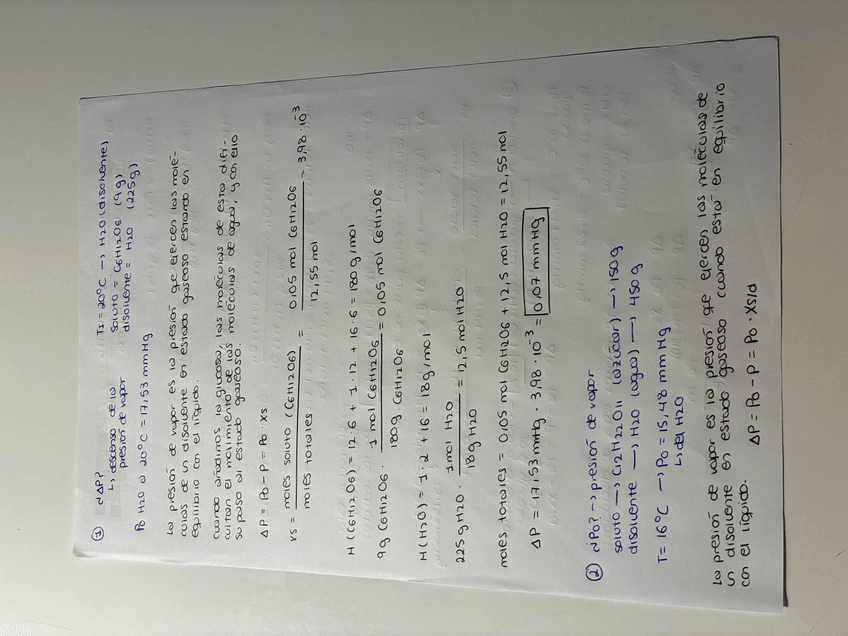 ① ¿ΔP?
↳ descenso de la
presión de vapor
Ts = 20°C → H2O (disolvente)
soluto = C6H12O6 (9g)
disolvente = H2O (225g)
Po H2O a 20°C = 17,53 mmHg
La presión de vapor es la presión que ejercen las molé-
culas de un disolvente en estado gaseoso estando en
equilibrio con el líquido.
Cuando añadimos la glucosa, las moléculas de esta difi-
cultan el movimiento de las moléculas de agua, y con ello
su paso al estado gaseoso.
ΔP = Po - P = Po · Xs
Xs = moles soluto (C6H12O6) / moles totales = 0,05 mol C6H12O6 / 12,55 mol = 3,98 · 10⁻³
M (C6H12O6) = 12·6 + 1·12 + 16·6 = 180 g/mol
9g C6H12O6 · 1 mol C6H12O6 / 180g C6H12O6 = 0,05 mol C6H12O6
M (H2O) = 1·2 + 16 = 18g/mol
225g H2O · 1 mol H2O / 18g H2O = 12,5 mol H2O
moles totales = 0,05 mol C6H12O6 + 12,5 mol H2O = 12,55 mol
ΔP = 17,53 mmHg · 3,98 · 10⁻³ = 0,07 mmHg
② ¿Po? → presión de vapor
soluto → C12H22O11 (azúcar) → 150g
disolvente → H2O (agua) → 450g
T = 16°C → Po = 15,48 mmHg
↳ del H2O
La presión de vapor es la presión que ejercen las moléculas de
un disolvente en estado gaseoso cuando está en equilibrio
con el líquido.
ΔP = Po - P = Po · Xs/d